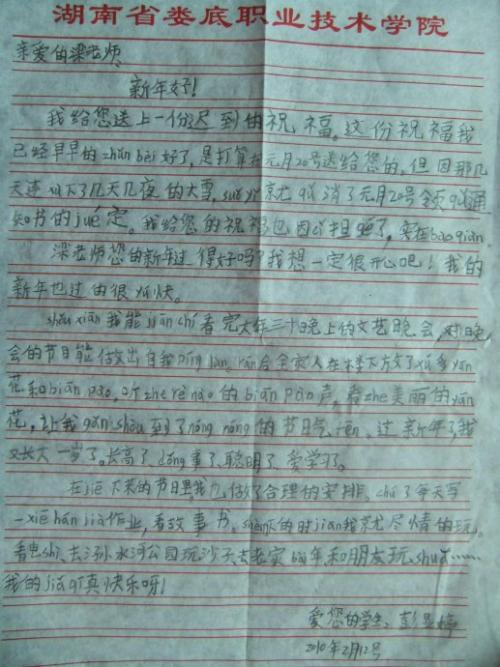 湖南省娄底职业技术学院
亲爱的梁老师
新年好!
我给您送上一份迟到的祝福。这份祝福我
已经早早的zhǔn bèi好了,是打算在元月20号送给您的,但因那几
天连下了几天几夜的大雪,suǒ yǐ就qǔ消了元月20号领qǔ通
知书的jué定。我给您的祝福也因此担误了,实在bào qiàn
梁老师您的新年过得好吗?我想一定很开心吧!我的
新年也过的很愉快。
shǒu xiān我能jiān chí看完大年三十晚上的文艺晚会,对晚
会的节目能做出自我píng lùn,rán后全家人在楼下放了xǔ多yān
花和biān pào,听zhe rè nào的biān pào声,看zhe美丽的yān
花,让我gǎn shòu到了nóng nóng的节日气fēn。过新年了,我
又长大一岁了。长高了、dǒng事了、聪明了、爱学习了。
在jiē下来的节日里我也做了合理的安排。chú了每天写
一xiē hán jià作业,看故事书。shèng下的时jiān我就尽情的玩。
看电shì、去涟水河公园玩沙子、去老家bài年、和朋友玩shuǎ……
我的jià qī真快乐呀!
爱您的学生:彭
2010年2月12号